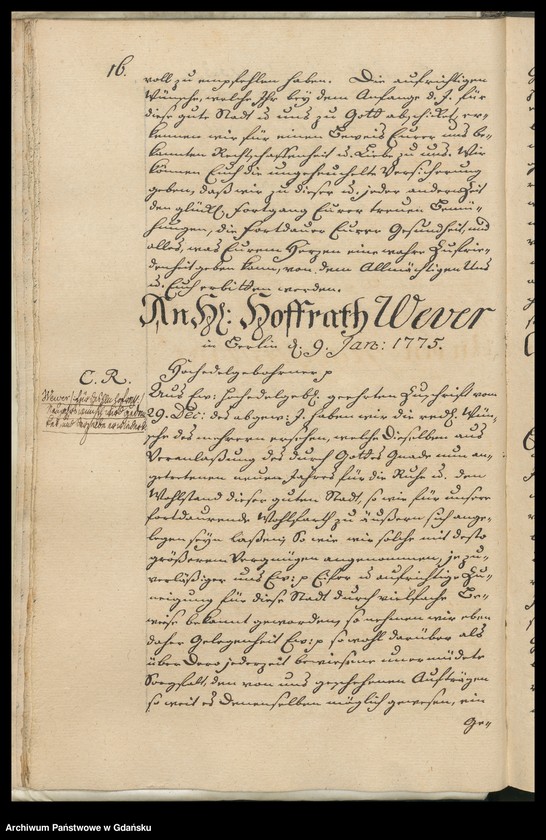 16.
voll zu empfehlen haben. Die aufrichtigen
Wünsche, welche Ihr bey dem Anfange d. J. für
diese gute Stadt u. uns zu Gott abschicket, er-
kennen wir für einen Beweis Eurer uns be-
kannten Rechtschaffenheit u. Liebe zu uns. Wir
können Euch die ungeheuchelte Versicherung
geben, daß wir zu dieser u. jeder andern Zeit
den glückl. Fortgang Eurer treuen Bemü-
hungen, die Fortdauer Eurer Gesundheit, und
alles, was Eurem Herzen eine wahre Zufrie-
denheit geben kann, von dem Allmächtigen Uns
u. Euch erbitten werden.
An H: Hoffrath Wever
in Berlin d. 9. Jan: 1775.
Hochedelgebohrner p
C. R.
Wever
Aus Ew: Hochedelgeb. geehrten Zuschrift vom
29. Dec: des abgew: J. haben wir die redl. Wün-
sche des mehrern ersehen, welche Dieselben aus
Veranlaßung des durch Gottes Gnade nun an-
getretenen neuen Jahres für die Ruhe u. den
Wohlstand dieser guten Stadt, so wie für unsere
fortdaurende Wohlfarth zu äußern sich ange-
legen seyn laßen; So wie wir solche mit desto
größerem Vergnügen angenommen, je zu-
verläßiger uns Ew: p Eifer u. aufrichtige Zu-
neigung für diese Stadt durch vielfache Be-
weise bekannt geworden; so nehmen wir eben
daher Gelegenheit Ew: p so wohl darüber als
über Dero jederzeit bewiesene unermüdete
Sorgfalt, den von uns geschehenen Aufträgen
so weit es Denenselben möglich gewesen, ein
Ge-
Archiwum Państwowe w Gdańsku